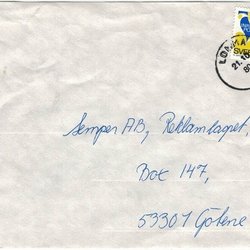 LOMMA
SVE
21.10
80
Semper AB, Reklamlagret,
Box 147,
53301 Götene